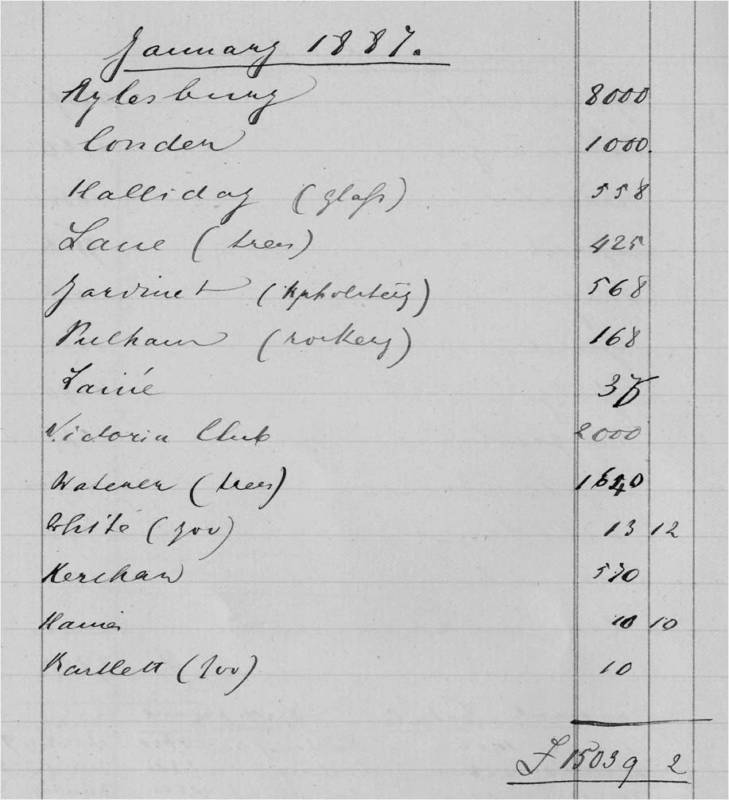 January 1887.
Aylesbury 8000
London 1000.
Halliday (glass) 558
Lane (trees) 425
(upholstery) 568
Pulham (rockery) 168
Lainé
Victoria Club 2000
Waterer (trees) 1640
White (zoo) 13 12
Kershaw 570
10 10
Bartlett (zoo) 10
£ 15039 2